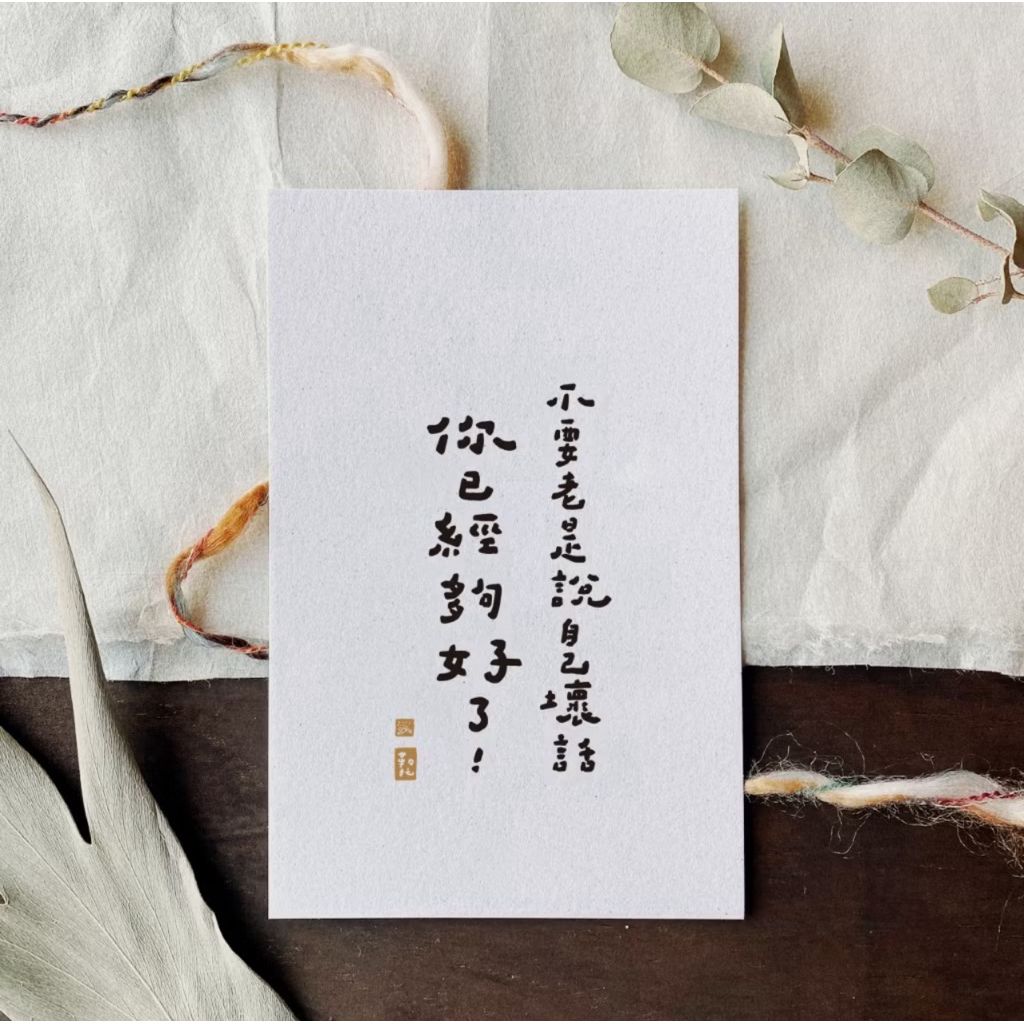 不要老是說自己壞話
你已經夠好了!